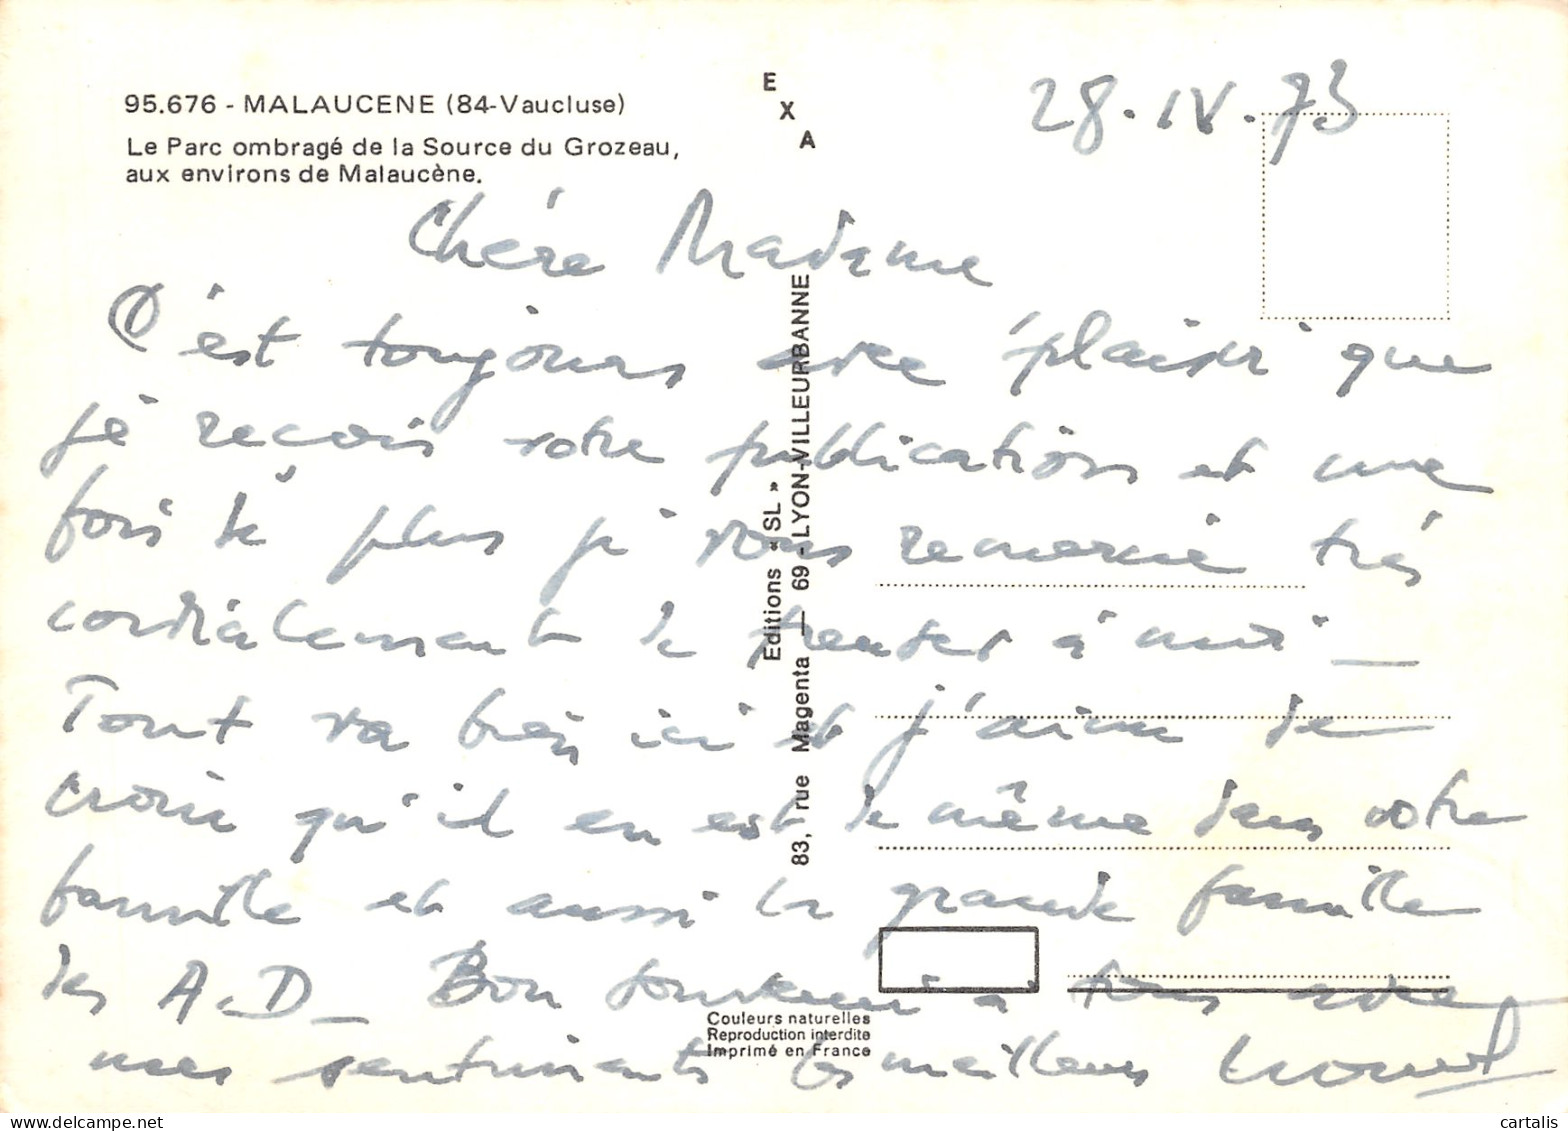 95.676 - MALAUCENE (84-Vaucluse)
Le Parc ombragé de la Source du Grozeau,
aux environs de Malaucène.
E
X
A
28.IV.73
Chère Madame
C'est toujours avec plaisir que
je reçois votre publications et une
fois de plus je vous remercie très
cordialement de penser à moi _
Tout va bien ici et j'aime de
croire qu'il en est de même dans votre
famille et aussi la grande famille
des A-D_ Bon souvenir à tous avec
mes sentiments les meilleurs
Editions « SL »
83, rue Magenta — 69 - LYON-VILLEURBANNE
Couleurs naturelles
Reproduction interdite
Imprimé en France
cartalis
www.delcampe.net